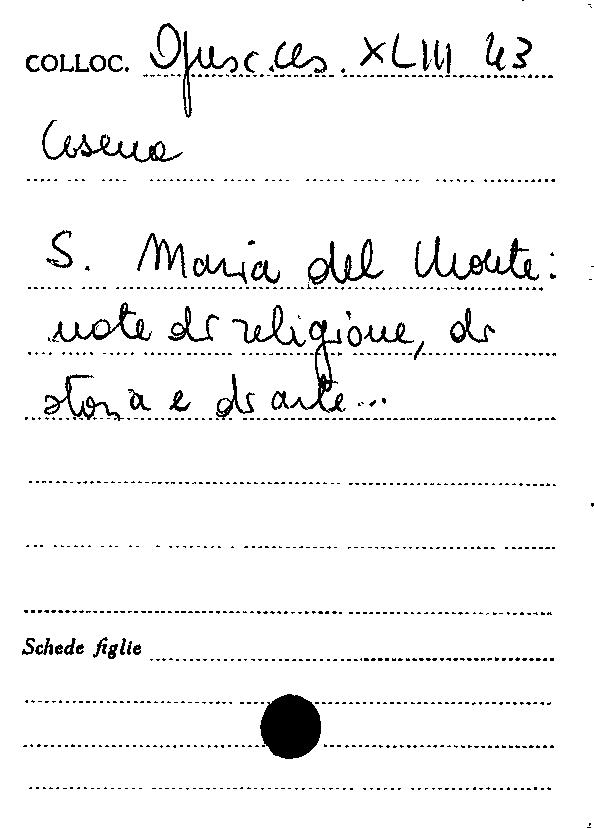 COLLOC. Opusc. Ces. XLIII 43
Cesena
S. Maria del Monte:
note di religione, di
storia e di arte...
Schede figlie